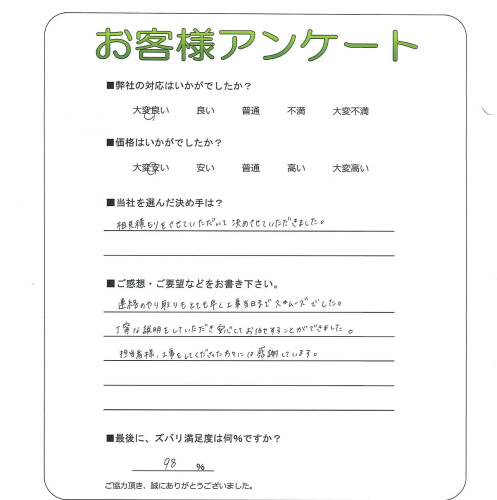 お客様アンケート
■弊社の対応はいかがでしたか？
大変良い 良い 普通 不満 大変不満
■価格はいかがでしたか？
大変安い 安い 普通 高い 大変高い
■当社を選んだ決め手は？
相見積もりをさせていただいて決めさせていただきました。
■ご感想・ご要望などをお書き下さい。
連絡のやり取りもとても早く工事当日までスムーズでした。
丁寧な説明をしていただき安心してお任せすることができました。
担当者様、工事をしてくださった方々には感謝しています。
■最後に、ズバリ満足度は何％ですか？
98 ％
ご協力頂き、誠にありがとうございました。